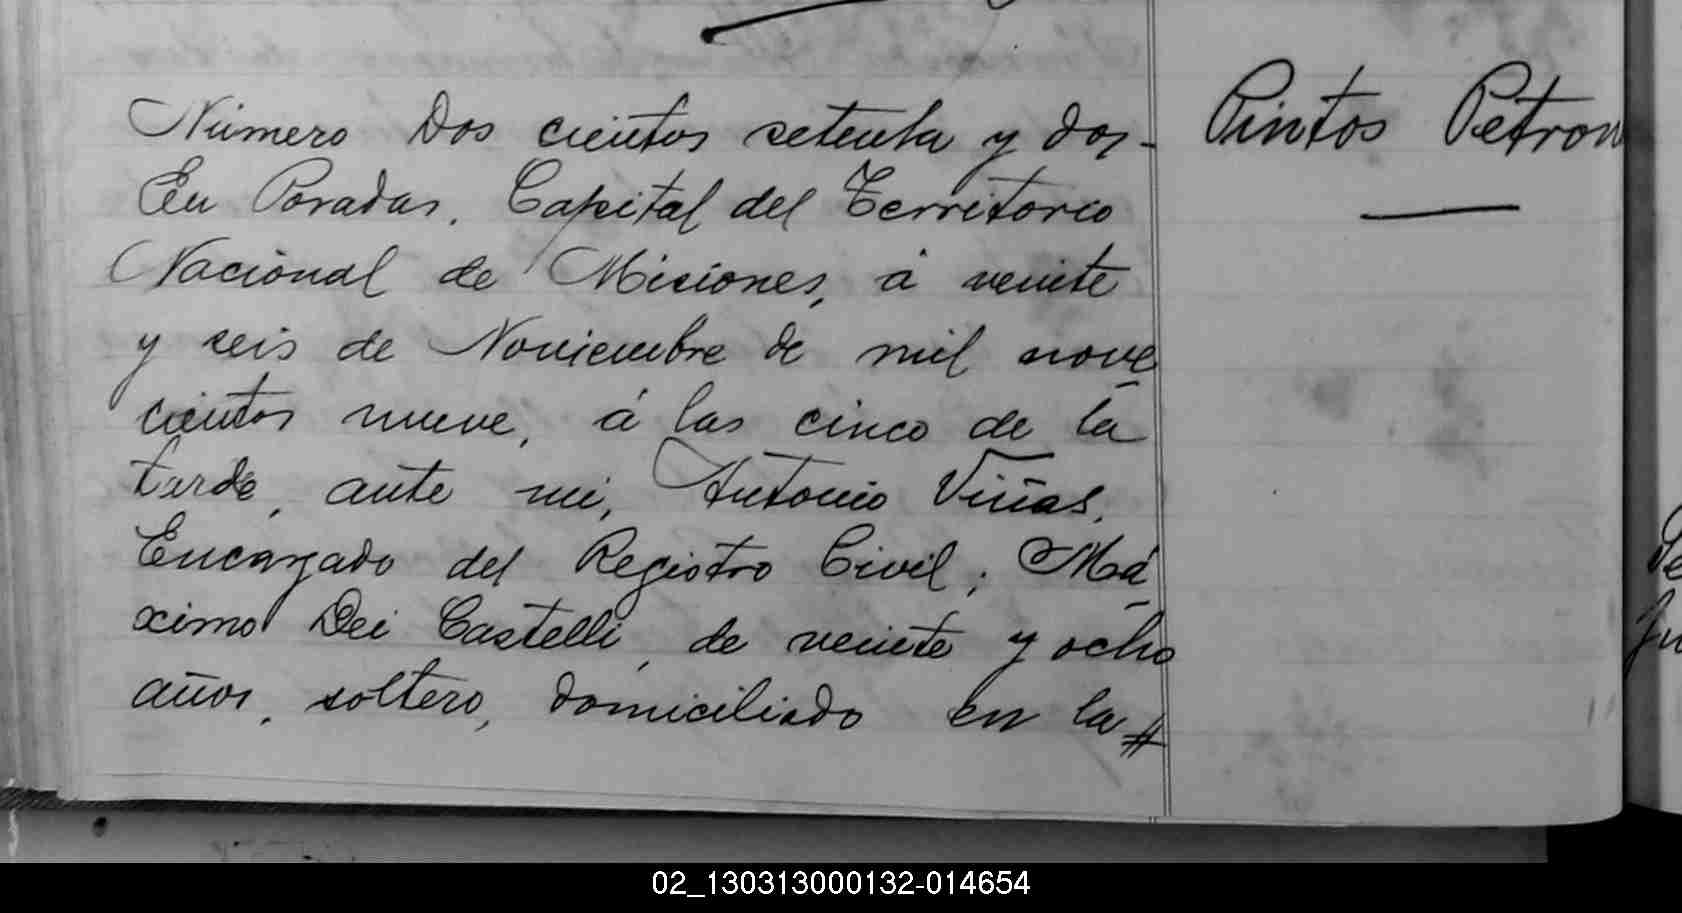 Número Dos cientos setenta y dos-
En Posadas, Capital del Territorio
Nacional de Misiones, á veinte
y seis de Noviembre de mil nove
cientos nueve, á las cinco de la
tarde, ante mi, Antonio Viñas,
Encargado del Registro Civil; Má
ximo Dei Castelli, de veinte y ocho
años, soltero, domiciliado en la #
Pintos Petron
02_130313000132-014654